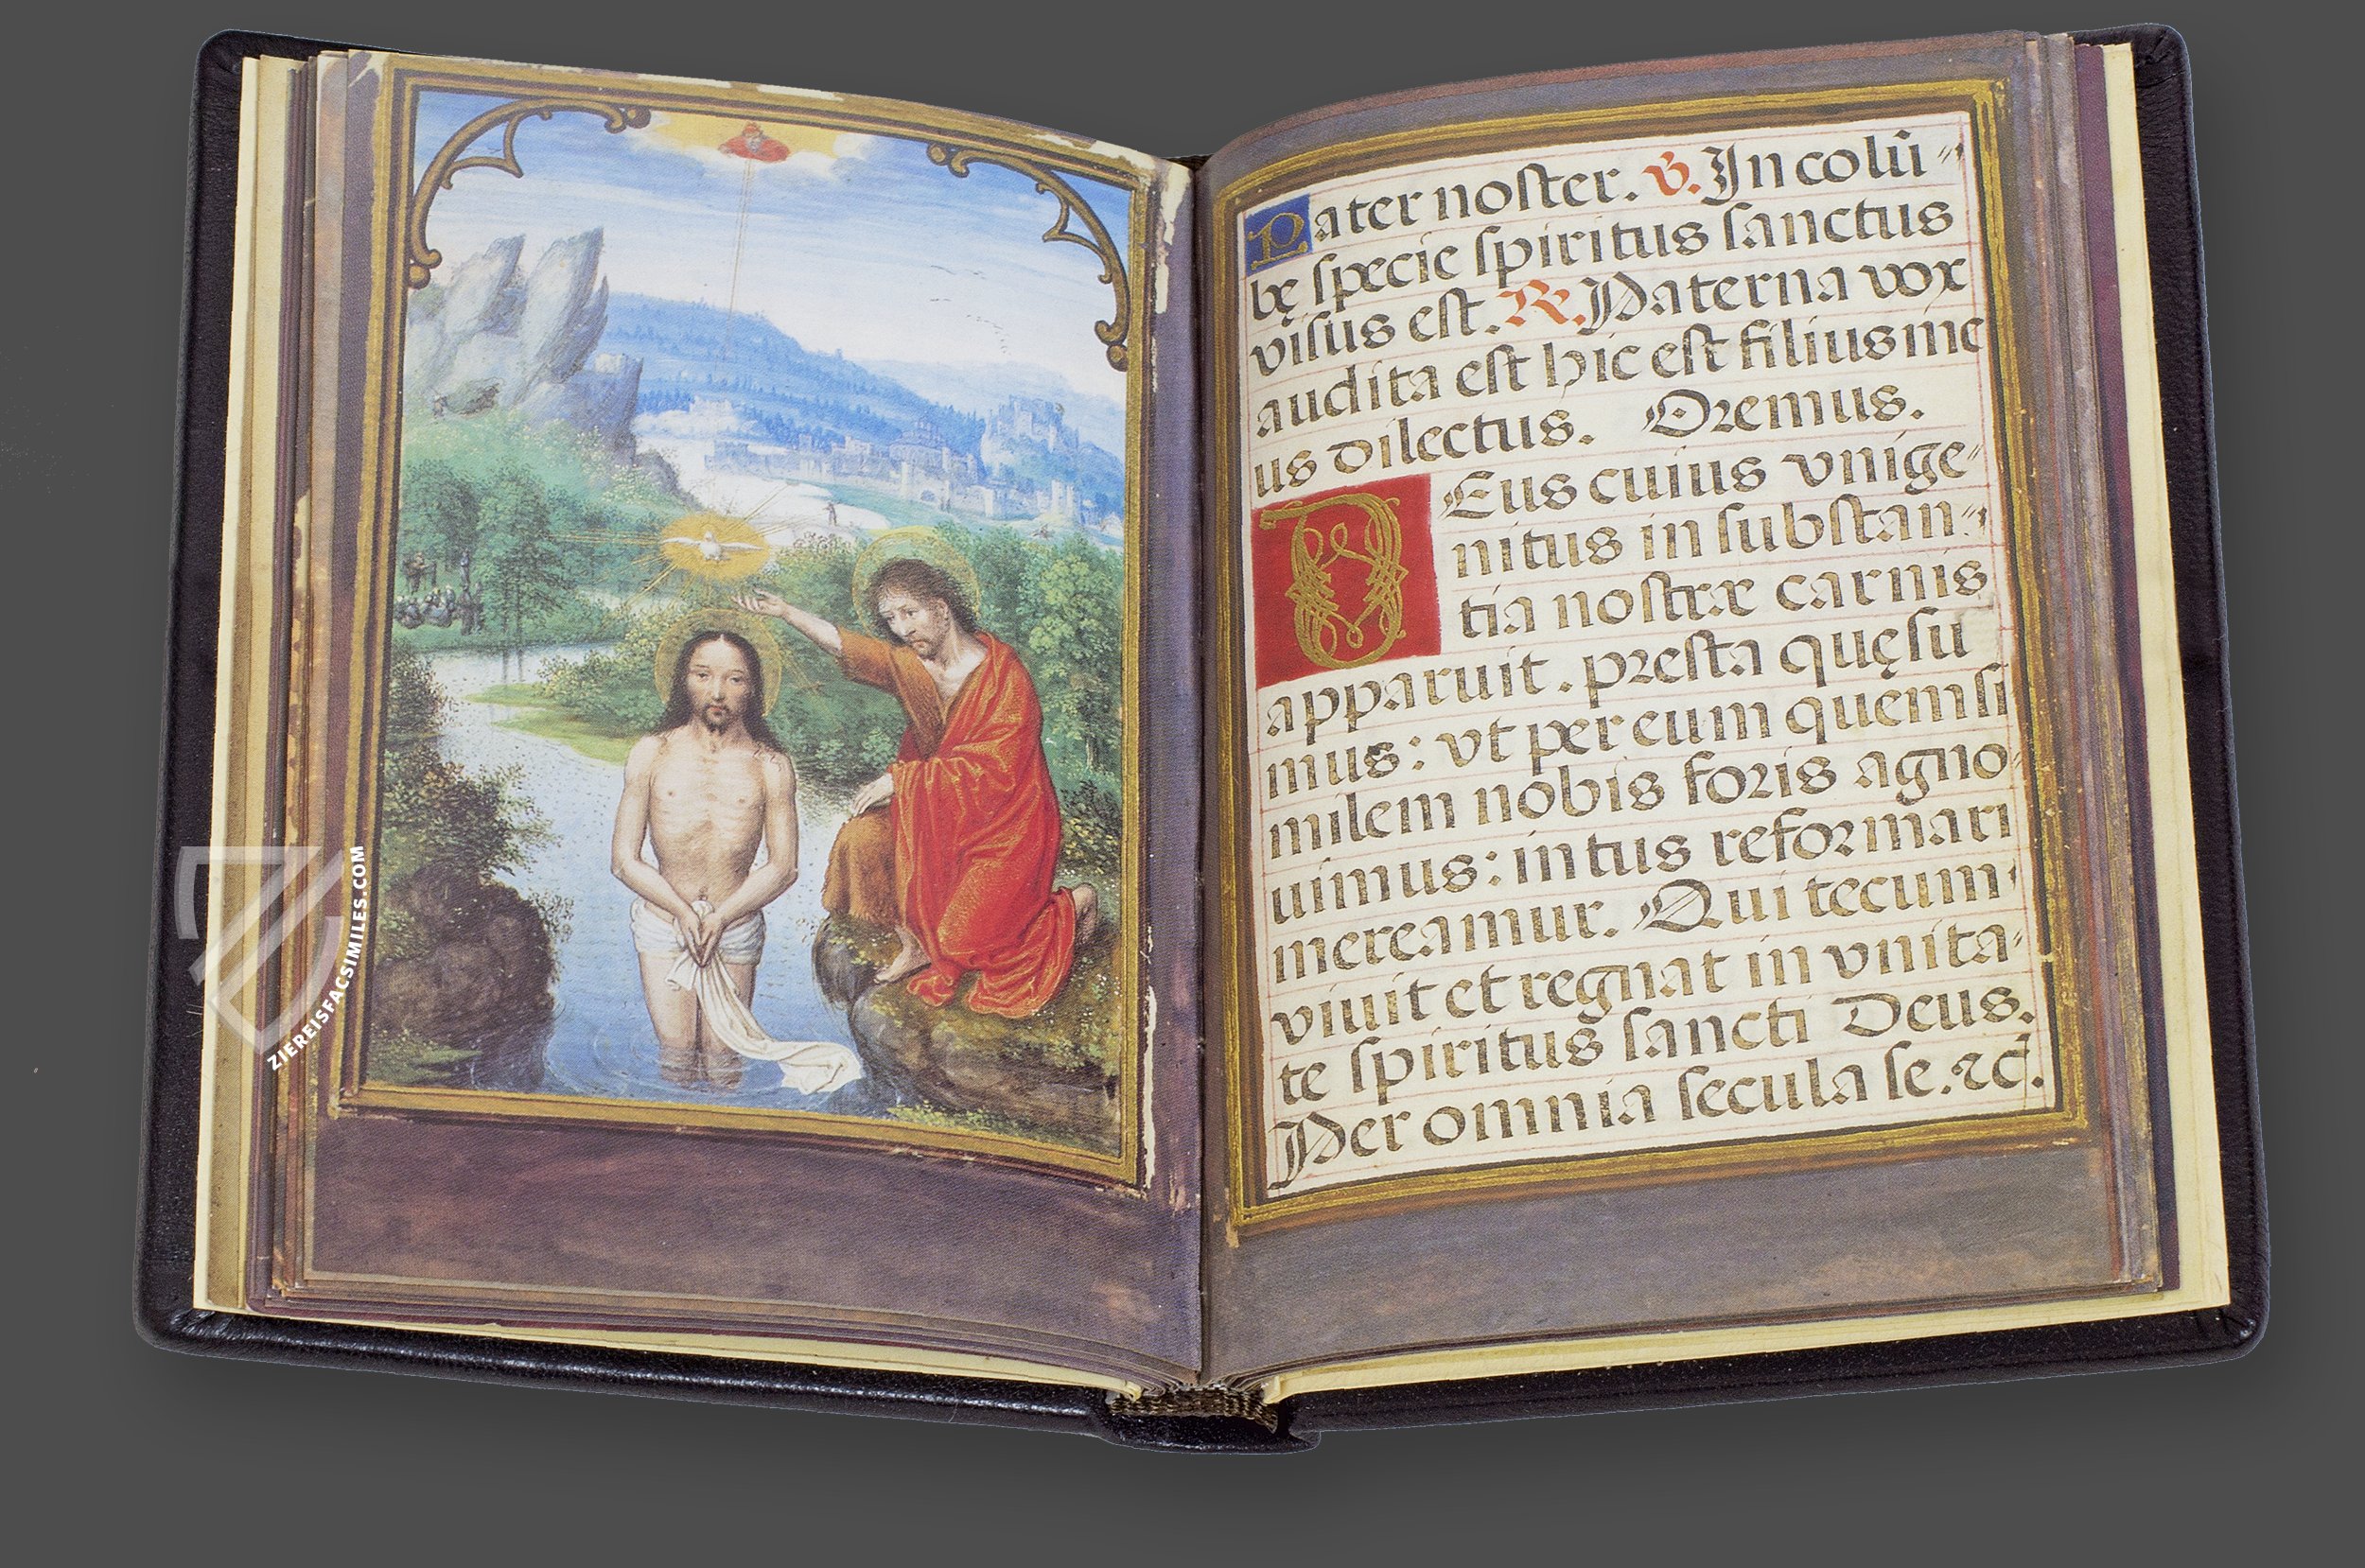 Pater noster. ℣. In colū⸗
bę specie spiritus sanctus
visus est. ℟. Paterna vox
audita est hic est filius me
us dilectus. Oremus.
DEus cuius vnige⸗
nitus in substan⸗
tia nostræ carnis
apparuit. presta quęsu
mus: vt per eum quem si
milem nobis foris agno⸗
uimus: intus reformari
mereamur. Qui tecum
viuit et regnat in vnita⸗
te spiritus sancti Deus.
Per omnia secula se. ⁊c̄.
ZIEREISFACSIMILES.COM